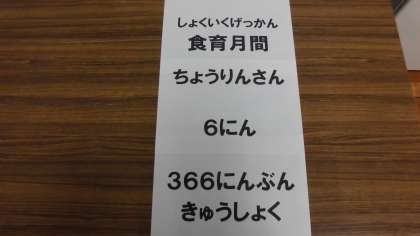 しょくいくげっかん
食育月間
ちょうりんさん
6にん
366にんぶん
きゅうしょく